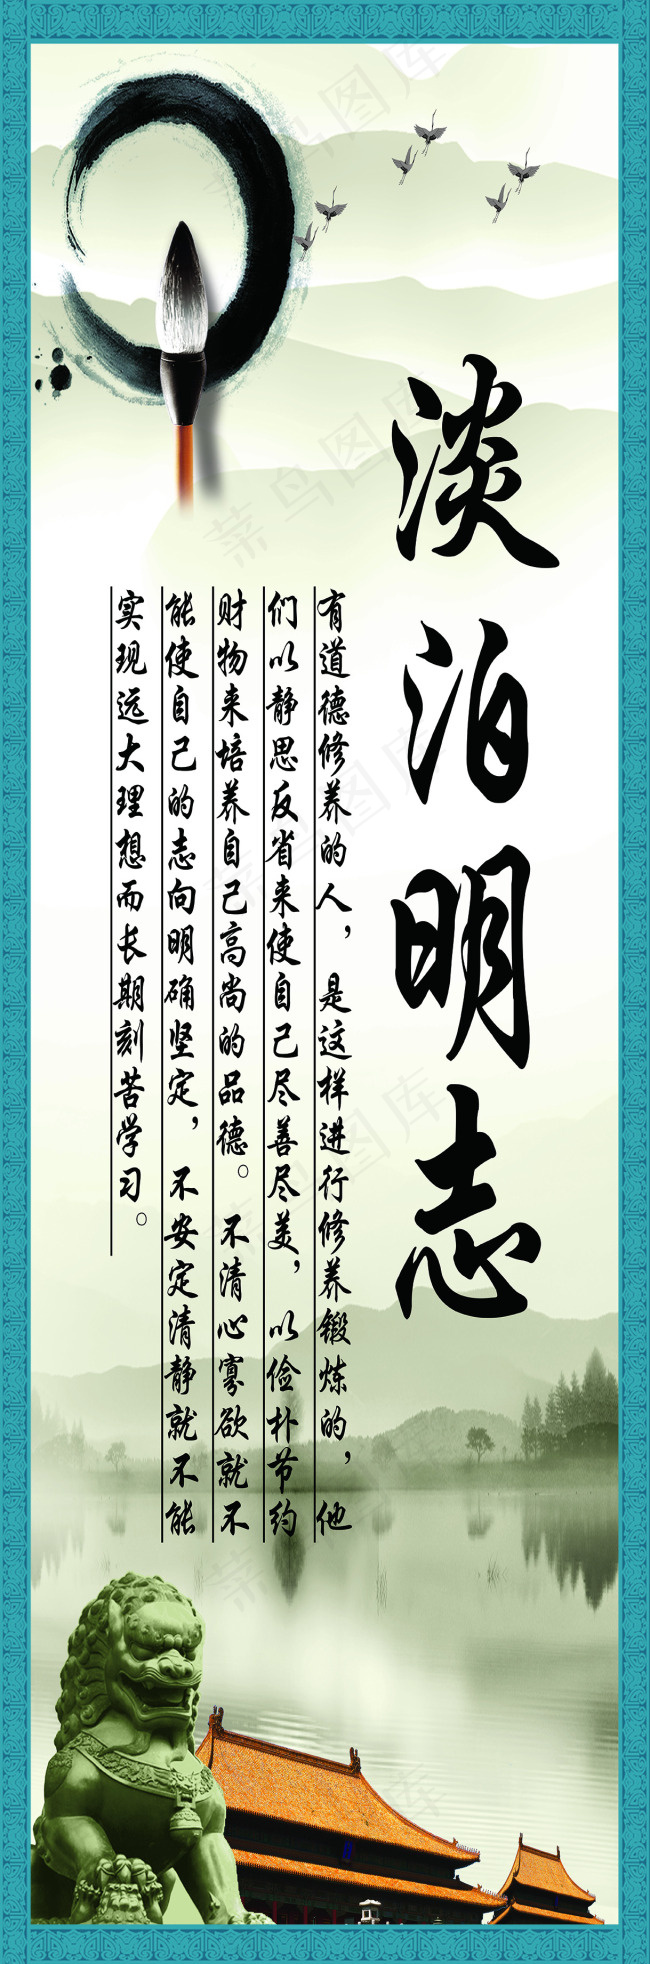 淡泊明志
有道德修养的人，是这样进行修养锻炼的，他
们以静思反省来使自己尽善尽美，以俭朴节约
财物来培养自己高尚的品德。不清心寡欲就不
能使自己的志向明确坚定，不安定清静就不能
实现远大理想而长期刻苦学习。
菜鸟图库